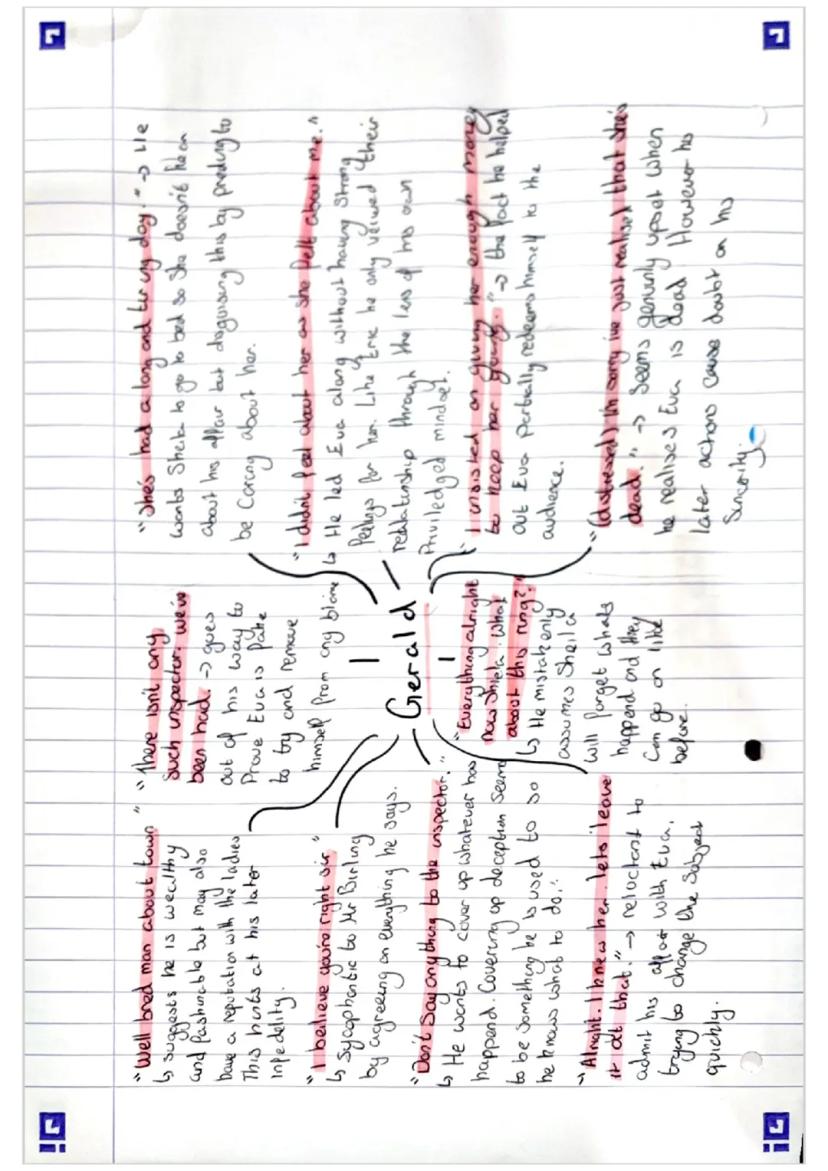 "Well bred man about town"
↳ suggests he is wealthy
and fashunable but may also
have a reputation with the ladies
This hints at his later
infedelity.
"I beilieve you're right sir"
↳ Sycophantic to Mr Birling
by agreeing on everything he says.
"Don't Say anything to the inspector."
↳ He wants to cover up whatever has
happend. Covering up deception seems
to be something he is used to so
he knows what to do.
"Alright. I knew her. lets leave
it at that." → reluctant to
admit his affair with Eva.
trying to change the Subject
quickly.
"There isn't any
Such inspector. we've
been had. → goes
out of his way to
Prove Eva is fake
to try and remove
himself from any blame
Gerald
"Everything alright
now Shiela. What
about this ring?"
↳ He mistakenly
assumes Sheila
will forget whats
happend and they
Can go on like
before.
"She's had a long and tiring day." → He
wants Sheila to go to bed so she doesn't hear
about his affair but disguising this by preding to
be Caring about her.
"I didn't feel about her as she felt about me."
↳ He led Eva along without having Strong
feelings for her. Like Eric he only veiwed their
realationship through the lens of his own
Priviledged mindset.
"I insisted on giving her enough money
to keep her going." → the fact he helped
out Eva partially redeems himself to the
audience.
"(distressed) I'm sorry ive just realised that she's
dead." → Seems genuinly upset when
he realises Eva is dead. However his
later actions cause doubt on his
Sincerity.